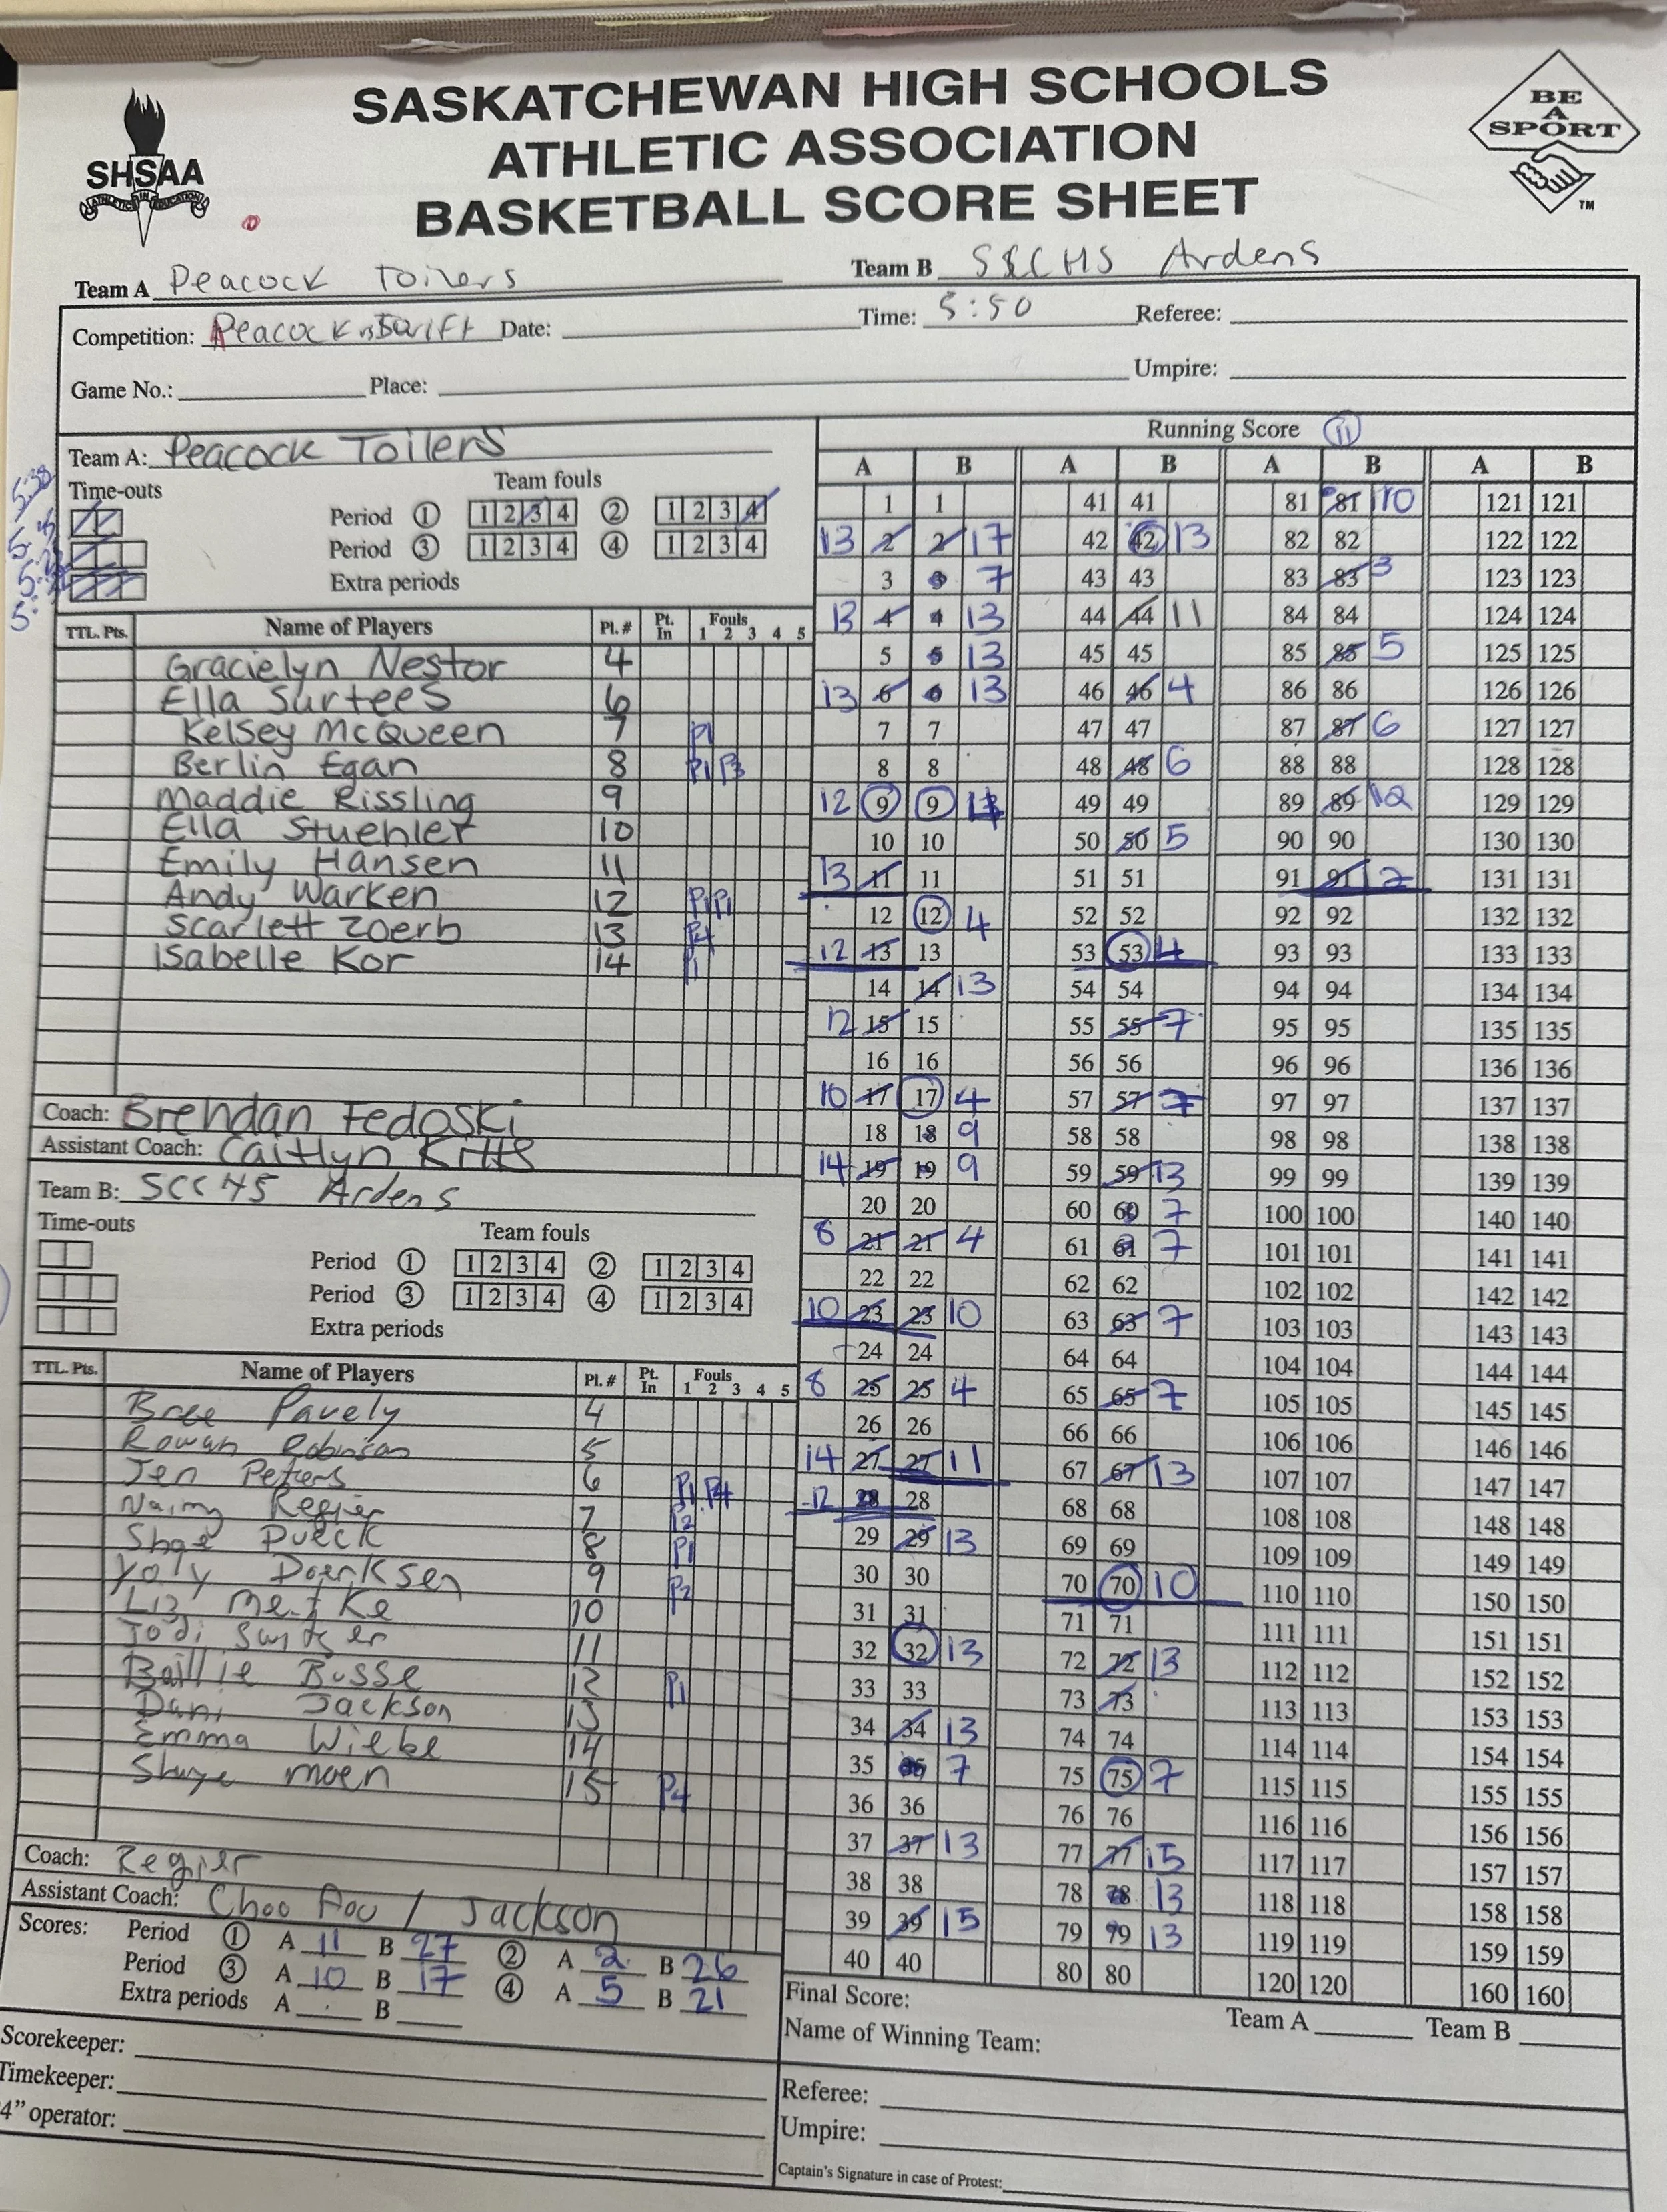 SASKATCHEWAN HIGH SCHOOLS
ATHLETIC ASSOCIATION
BASKETBALL SCORE SHEET
SHSAA
ATHLETICS IN EDUCATION
BE
A
SPORT
TM
Team A Peacock Toilers Team B SSCHS Ardens
Competition: Peacock vs Swift Date: Time: 5:50 Referee:
Game No.: Place: Umpire:
Team A: Peacock Toilers
Time-outs Team fouls
Period 1 1 2 3 4 2 1 2 3 4
Period 3 1 2 3 4 4 1 2 3 4
Extra periods
TTL. Pts. Name of Players Pl. # Pt. In Fouls 1 2 3 4 5
Gracielyn Nestor 4
Ella Surtees 6
Kelsey McQueen 7 P1
Berlin Egan 8 P1 P3
Maddie Rissling 9
Ella Stuehler 10
Emily Hansen 11
Andy Warken 12 P1 P1
Scarlett Zoerb 13 P4
Isabelle Kor 14 P1
Coach: Brendan Fedoski
Assistant Coach: Caitlyn Kitts
Team B: SCC45 Ardens
Time-outs Team fouls
Period 1 1 2 3 4 2 1 2 3 4
Period 3 1 2 3 4 4 1 2 3 4
Extra periods
TTL. Pts. Name of Players Pl. # Pt. In Fouls 1 2 3 4 5
Bree Pavely 4
Rowan Robinson 5
Jen Peters 6 P1 P4
Regier 7 P2
Shae Dueck 8 P1
Yoly Doerksen 9 P2
10
Jodi Switzer 11
Baillie Busse 12 P1
Dani Jackson 13
Emma Wiebe 14
Shaye Moen 15 P4
Coach: Regier
Assistant Coach: Choo Foo / Jackson
Scores: Period 1 A 11 B 27 2 A 2 B 26
Period 3 A 10 B 17 4 A 5 B 21
Extra periods A B
Scorekeeper:
Timekeeper:
4" operator:
Running Score 11
A B A B A B A B
1 1 41 41 81 81 10 121 121
13 2 2 17 42 42 13 82 82 122 122
3 3 7 43 43 83 83 3 123 123
13 4 4 13 44 44 11 84 84 124 124
5 5 13 45 45 85 85 5 125 125
13 6 6 13 46 46 4 86 86 126 126
7 7 47 47 87 87 6 127 127
8 8 48 48 6 88 88 128 128
12 9 9 49 49 89 89 12 129 129
10 10 50 50 5 90 90 130 130
13 11 11 51 51 91 91 12 131 131
12 12 4 52 52 92 92 132 132
12 13 13 53 53 4 93 93 133 133
14 14 13 54 54 94 94 134 134
12 15 15 55 55 7 95 95 135 135
16 16 56 56 96 96 136 136
10 17 17 4 57 57 7 97 97 137 137
18 18 9 58 58 98 98 138 138
14 19 19 9 59 59 13 99 99 139 139
20 20 60 60 7 100 100 140 140
8 21 21 4 61 61 7 101 101 141 141
22 22 62 62 102 102 142 142
10 23 23 10 63 63 7 103 103 143 143
24 24 64 64 104 104 144 144
8 25 25 4 65 65 7 105 105 145 145
26 26 66 66 106 106 146 146
14 27 27 11 67 67 13 107 107 147 147
12 28 28 68 68 108 108 148 148
29 29 13 69 69 109 109 149 149
30 30 70 70 10 110 110 150 150
31 31 71 71 111 111 151 151
32 32 13 72 72 13 112 112 152 152
33 33 73 73 113 113 153 153
34 34 13 74 74 114 114 154 154
35 35 7 75 75 7 115 115 155 155
36 36 76 76 116 116 156 156
37 37 13 77 77 15 117 117 157 157
38 38 78 78 13 118 118 158 158
39 39 15 79 79 13 119 119 159 159
40 40 80 80 120 120 160 160
Final Score: Team A Team B
Name of Winning Team:
Referee:
Umpire:
Captain's Signature in case of Protest: